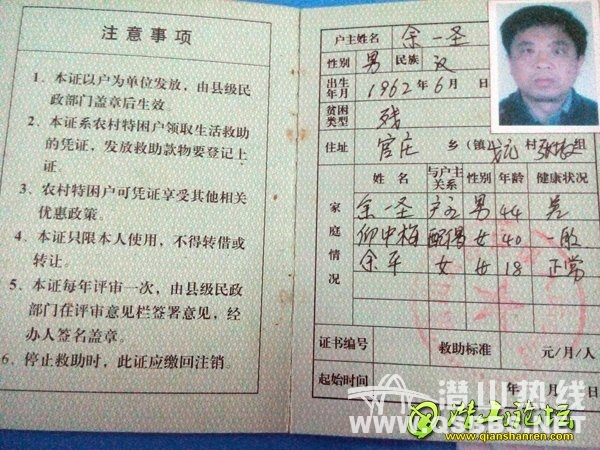 注意事项
1．本证以户为单位发放，由县级民
政部门盖章后生效。
2．本证系农村特困户领取生活救助
的凭证，发放救助款物要登记上
证。
3．农村特困户可凭证享受其他相关
优惠政策。
4．本证只限本人使用，不得转借或
转让。
5．本证每年评审一次，由县级民政
部门在评审意见栏签署意见，经
办人签名盖章。
6．停止救助时，此证应缴回注销。
户主姓名 余一圣
性别 男 民族 汉
出生年月 1962年6月 日
贫困类型 残
住址 官庄 乡(镇) 村 组
家庭情况
姓名 与户主关系 性别 年龄 健康状况
余一圣 户主 男 44 差
仰中梅 配偶 女 40 一般
余平 女 女 18 正常
证书编号 救助标准 元/月/人
起始时间 年 月 日
潜山热线
WWW.QSBBS.NET
www.qianshanren.com